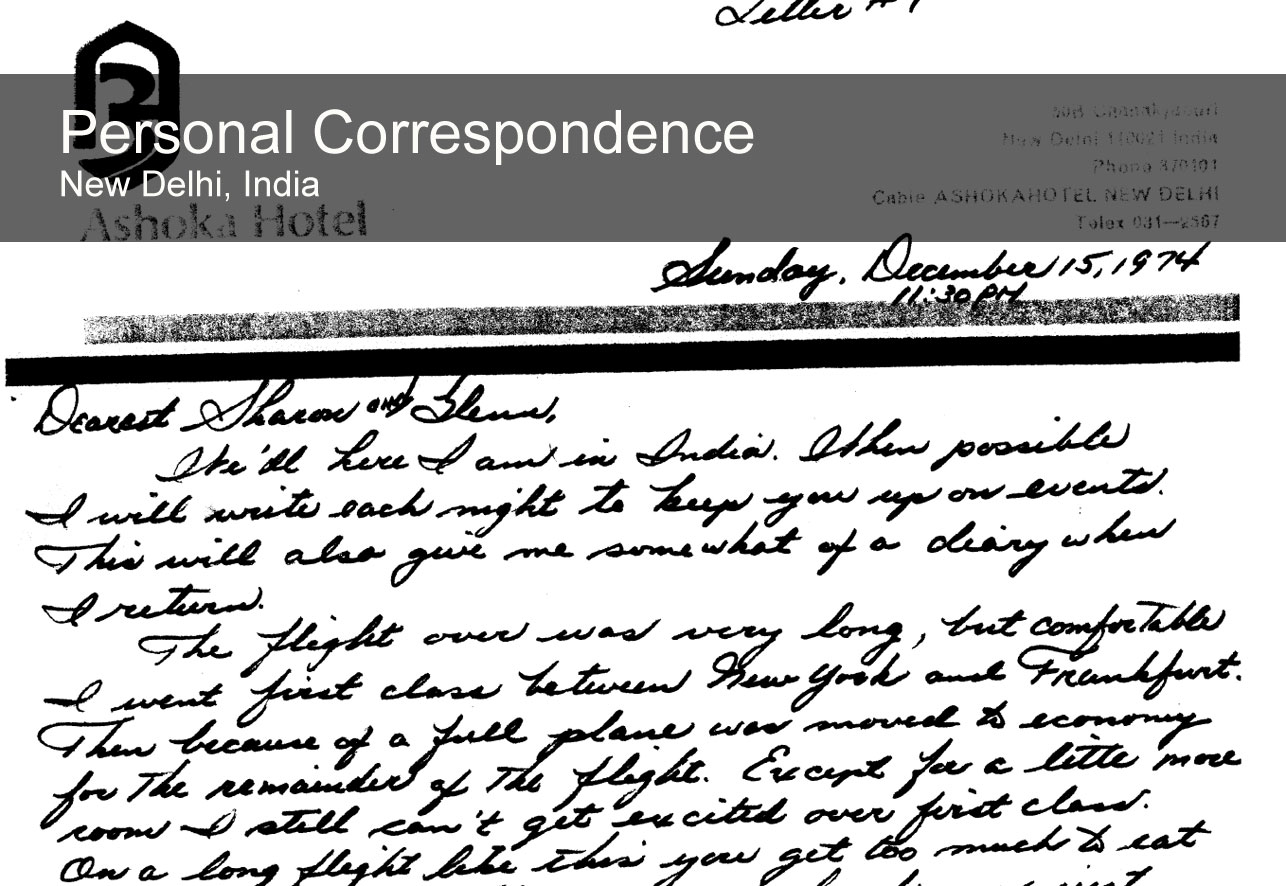 Letter #1
Personal Correspondence
New Delhi, India
Ashoka Hotel
50B Chanakyapuri
New Delhi 110021 India
Phone 370101
Cable ASHOKAHOTEL NEW DELHI
Telex 031—2567
Sunday, December 15, 1974
11:30 PM
Dearest Sharon and Glenn,
We'll here I am in India. When possible
I will write each night to keep you up on events.
This will also give me somewhat of a diary when
I return.
The flight over was very long, but comfortable
I went first class between New York and Frankfurt.
Then because of a full plane was moved to economy
for the remainder of the flight. Except for a little more
room I still can't get excited over first class.
On a long flight like this you get too much to eat